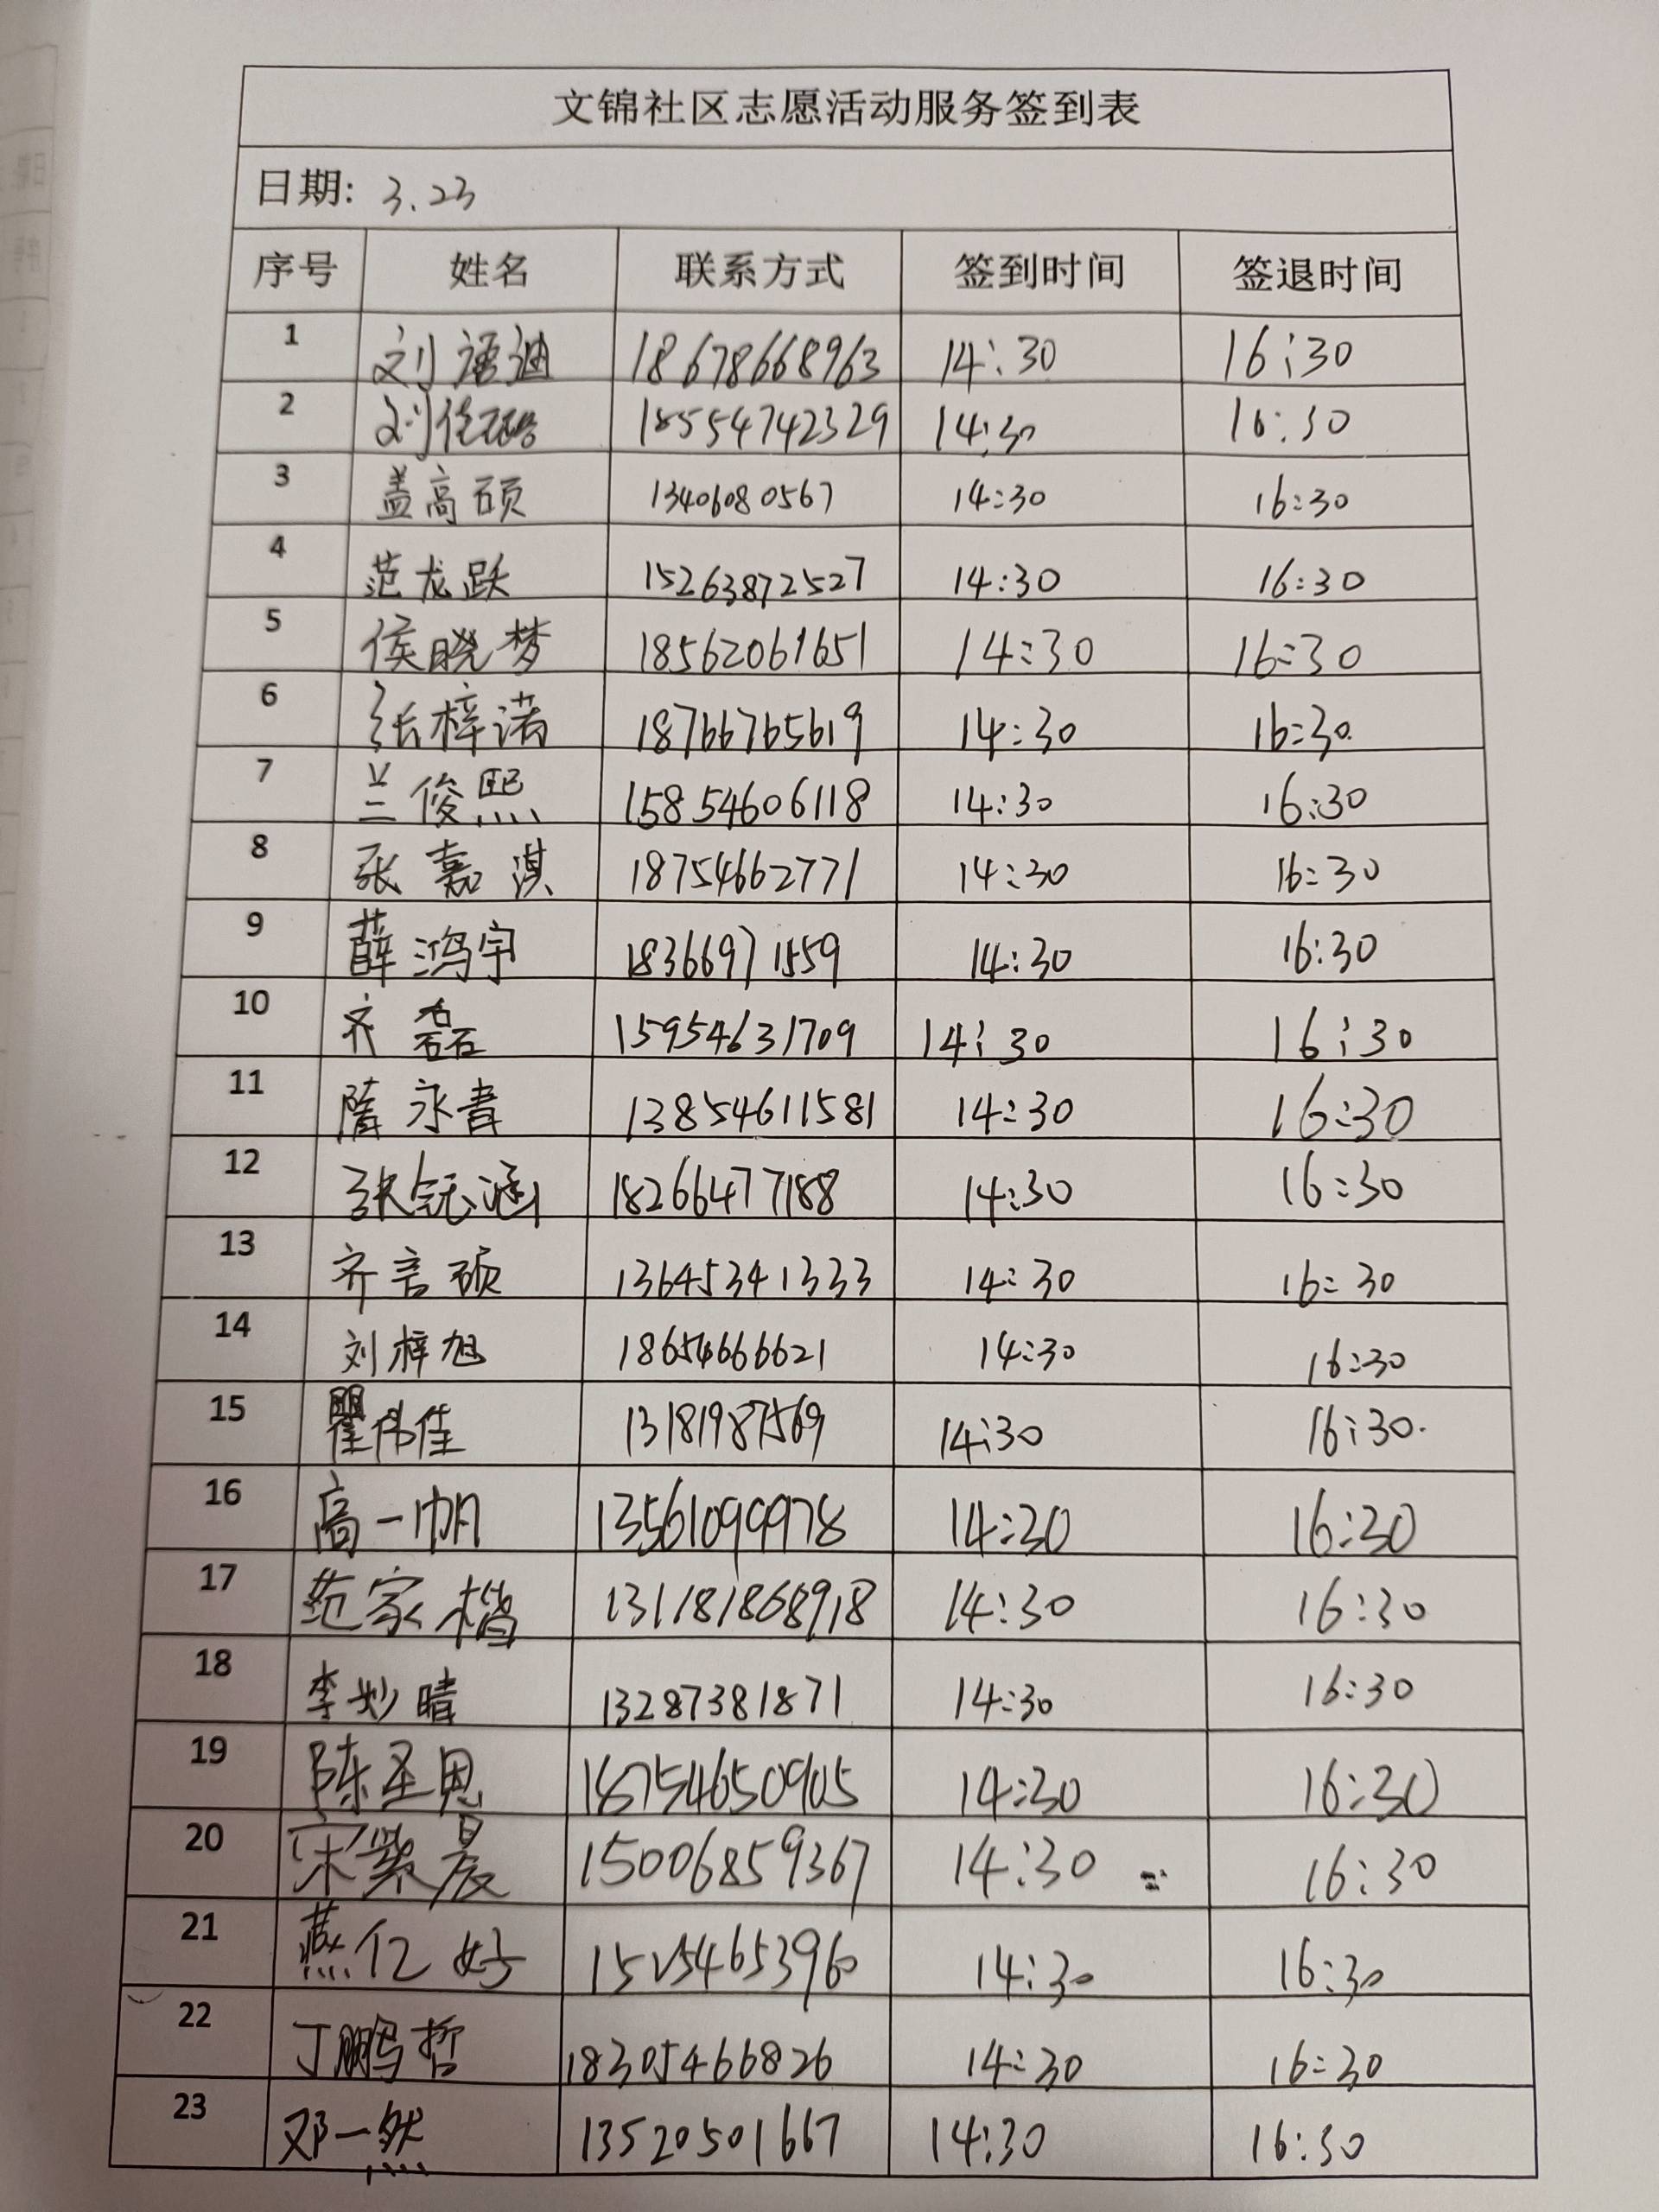 文锦社区志愿活动服务签到表
日期: 3.23
序号 姓名 联系方式 签到时间 签退时间
1 刘语迪 18678668963 14:30 16:30
2 刘佳璐 18554742329 14:30 16:30
3 盖高硕 13406080567 14:30 16:30
4 范龙跃 15263872527 14:30 16:30
5 侯晓梦 18562061651 14:30 16:30
6 张梓诺 18766765619 14:30 16:30
7 兰俊熙 15854606118 14:30 16:30
8 张嘉淇 18754662771 14:30 16:30
9 薛鸿宇 18366971559 14:30 16:30
10 齐磊 15954631709 14:30 16:30
11 隋永青 13854611581 14:30 16:30
12 张钰涵 18266477188 14:30 16:30
13 齐言硕 13645341333 14:30 16:30
14 刘梓旭 18654666621 14:30 16:30
15 瞿伟佳 13181987569 14:30 16:30
16 高一帆 13561099978 14:30 16:30
17 范家楷 131181868918 14:30 16:30
18 李妙晴 13287381871 14:30 16:30
19 陈圣恩 18754650905 14:30 16:30
20 宋紫晨 15006859367 14:30 16:30
21 燕仁好 15254653960 14:30 16:30
22 丁鹏哲 18305466826 14:30 16:30
23 邓一然 13520501667 14:30 16:30